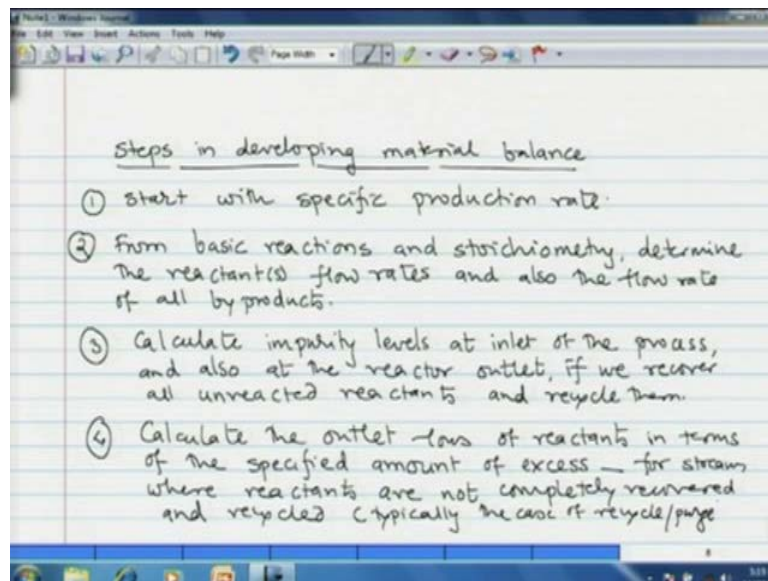 Note1 - Windows Journal
File Edit View Insert Actions Tools Help
Page Width
Steps in developing material balance
① Start with specific production rate.
② From basic reactions and stoichiometry, determine
the reactant(s) flow rates and also the flow rate
of all byproducts.
③ Calculate impurity levels at inlet of the process,
and also at the reactor outlet, if we recover
all unreacted reactants and recycle them.
④ Calculate the outlet flows of reactants in terms
of the specified amount of excess – for stream
where reactants are not completely recovered
and recycled (typically the case of recycle/purge
8